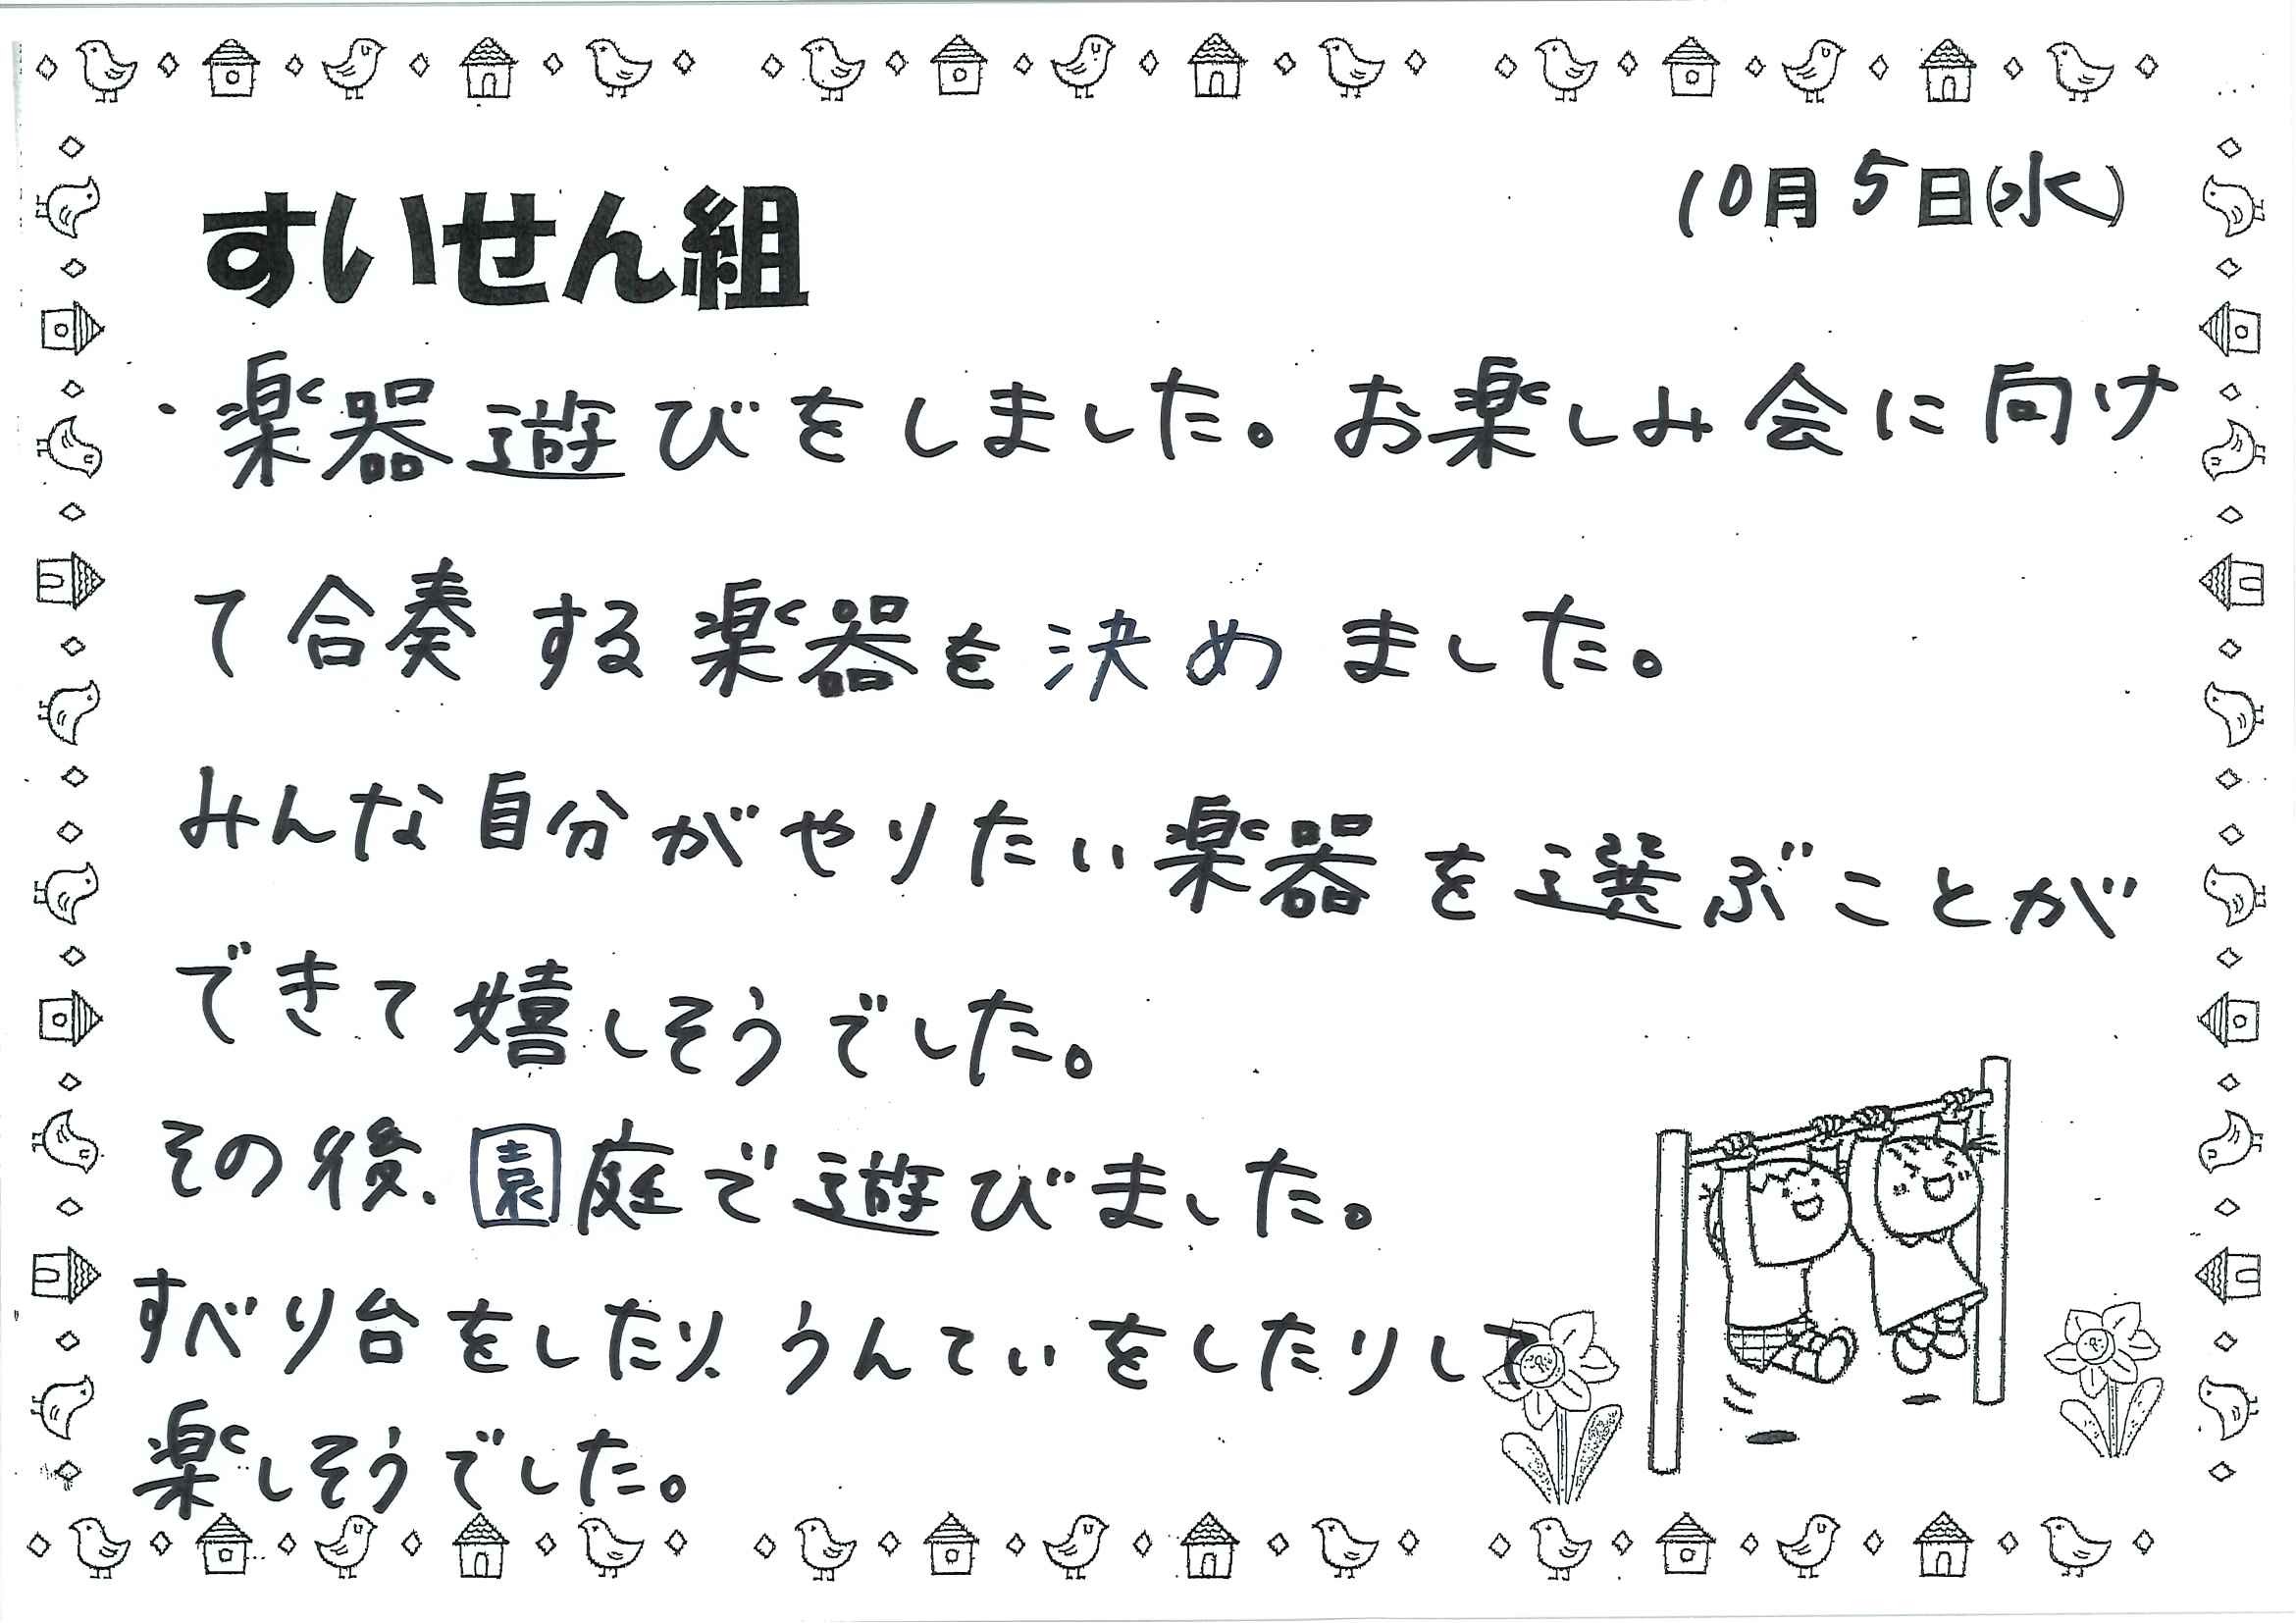 10月5日(水)
すいせん組
・楽器遊びをしました。お楽しみ会に向け
て合奏する楽器を決めました。
みんな自分がやりたい楽器を選ぶことが
できて嬉しそうでした。
その後、園庭で遊びました。
すべり台をしたり、うんていをしたりして
楽しそうでした。